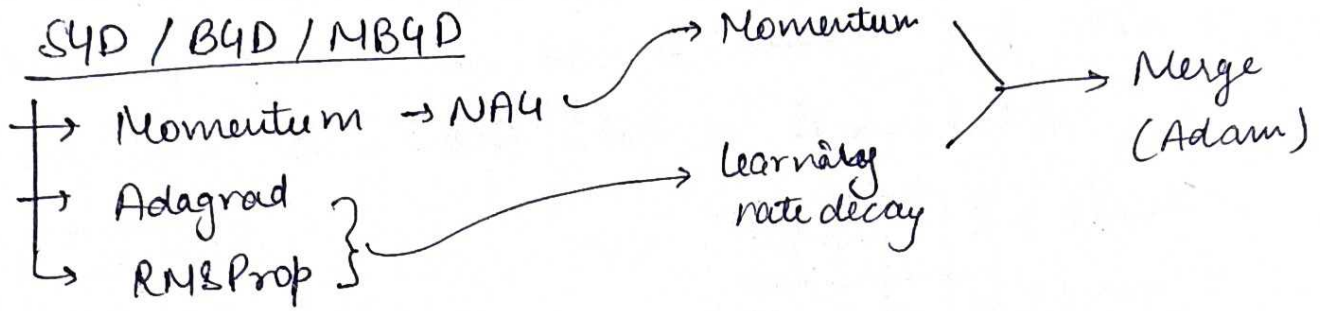 SGD / BGD / MBGD
→ Momentum → NAG → Momentum
→ Adagrad
→ RMSProp
Learning
rate decay
→ Merge
(Adam)